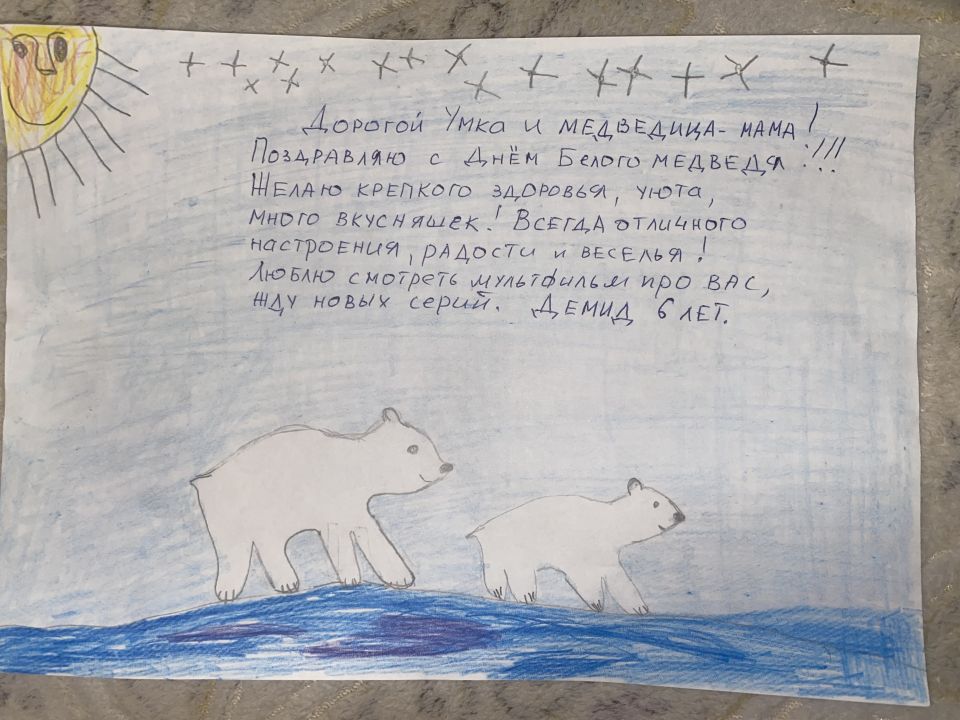 Дорогой Умка и медведица-мама!
Поздравляю с Днём Белого медведя!!!!
Желаю крепкого здоровья, уюта,
много вкусняшек! Всегда отличного
настроения, радости и веселья!
Люблю смотреть мультфильм про вас,
жду новых серий. Демид 6 лет.